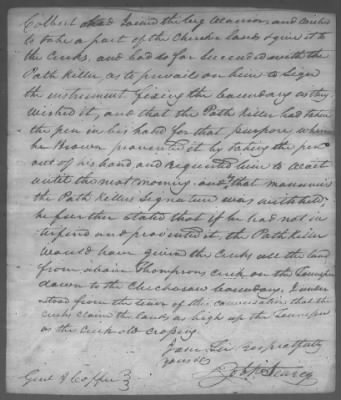 Colbert had joined the big Warrior and wishes
to take a part of the Cherokee lands & give it to
the Creeks, and had so far succeeded with the
Path Killer, as to prevail on him to Sign
the instrument fixing the boundary as they
wished it, and that the Path Killer had taken
the pen in his hand for that purpose when
he Brown prevented it by taking the pen
out of his hand and requested him to wait
until the next morning and that
the Path Killers Signature was withheld.
he further stated that if he had not in
terfered and prevented it, the Path Killer
would have given the Creeks all the land
from above Thompsons Creek on the Tennessee
down to the Chickasaw boundary. I under
stood from the tenor of this conversation that the
Creeks claim the lands as high up the Tennessee
as the Creek old crossing
I am Sir respectfully
yours &c
Searcy
Genl J Coffee